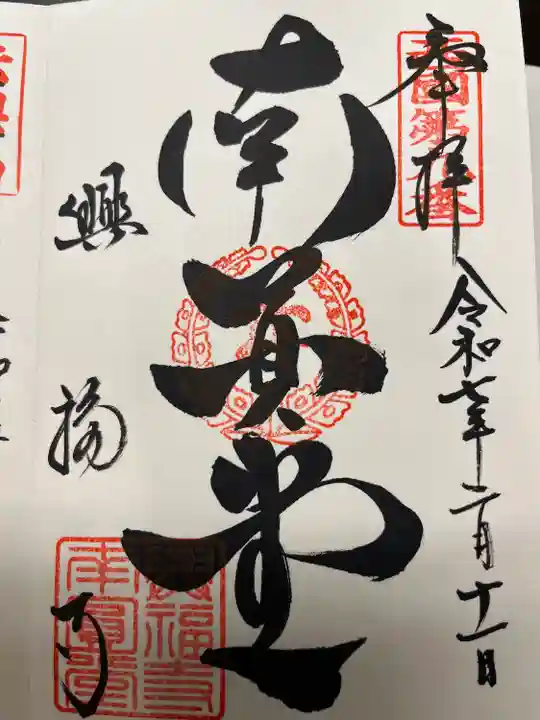 奉拝 令和七年二月十一日
西國第九番
南円堂
興福寺
興福寺